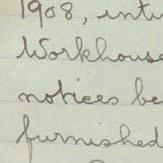 1908, intu
Workhouse
notices be
furnished